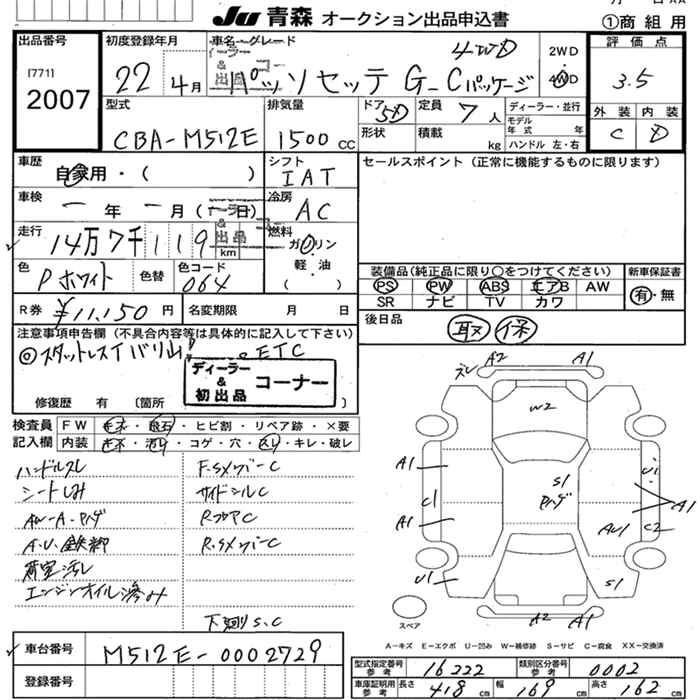 Ju 青森 オークション出品申込書
①商 組 用
出品番号
[771]
2007
初度登録年月
22年4月
車名・グレード
4WD
パッソセッテ G_Cパッケージ
2WD
4WD
評価点
3.5
外装 内装
C D
型式
CBA-M512E
排気量
1500 CC
ドア 5D
形状
定員 7人
積載 kg
ディーラー・並行
モデル年式 年
ハンドル 左・右
車歴
自家用・( )
シフト
IAT
セールスポイント (正常に機能するものに限ります)
車検
一年 一月 ( 日)
冷房
AC
走行
14万7千119 km
燃料
ガソリン
軽・油
( )
色
Pホワイト
色替
色コード
064
装備品(純正品に限り○をつけてください)
PS PW ABS エアB AW
SR ナビ TV カワ
新車保証書
有・無
R券 ¥11,150円
名変期限 月 日
後日品
取 保
注意事項申告欄 (不具合内容等は具体的に記入して下さい)
◎スタットレスTバリ山! ETC
ディーラー
&
初出品
コーナー
修復歴 有 (箇所
検査員記入欄
FW キズ・飛石・ヒビ割・リペア跡・×要
内装 キズ・汚レ・コゲ・穴・スレ・キレ・破レ
ハンドルスレ
シートしみ
AW-A・Pハゲ
A.U.鉄粉
荷室汚レ
エンジンオイル滲み
F.SメンバーC
サイドシルC
RフロアC
R.SメンバーC
下廻りS.C
A2 A1
W2
A1
C1
A1
U1
S1
Pハゲ
U1
A1
AU1
C2
S1
A2 A1
スペア
A-キズ E-エクボ U-凹み W-補修跡 S-サビ C-腐食 XX-交換済
車台番号
M512E-0002729
登録番号
型式指定番号 参考 16322
類別区分番号 参考 0002
車庫証明用 参考 長さ 418 cm 幅 169 cm 高さ 162 cm